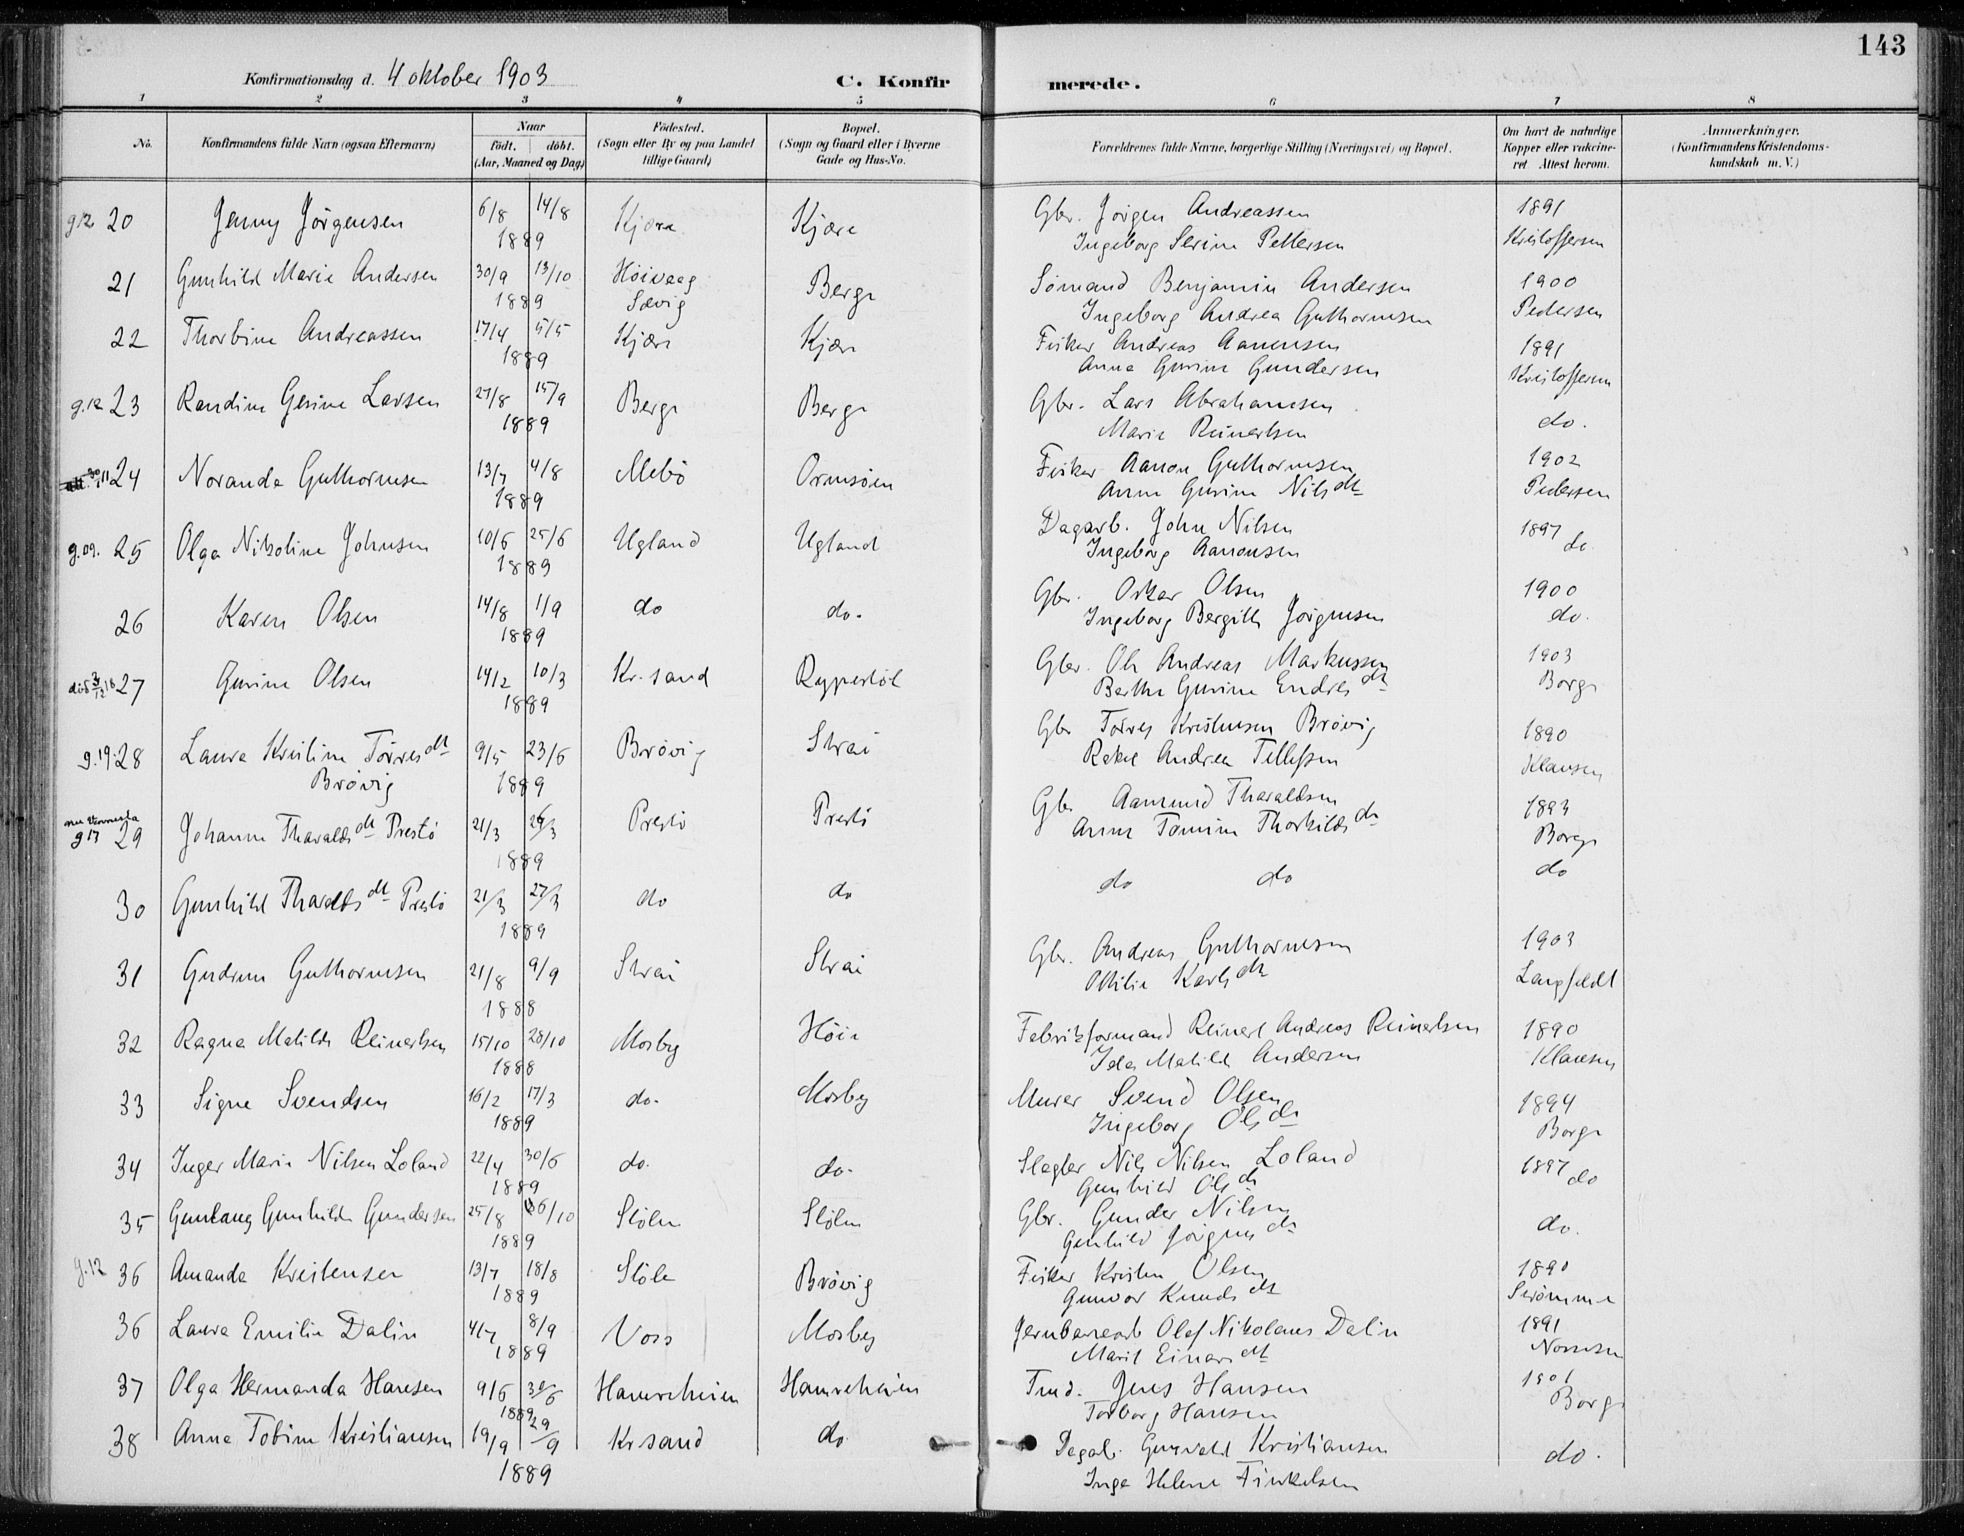 143
Konfirmationsdag d. 4 oktober 1903
C. Konfirmerede.
1 2 3 4 5 6 7 8
No. Konfirmandens fulde Navn (ogsaa Efternavn) Naar født. døbt. (Aar, Maaned og Dag) Fødested. (Sogn eller By og paa Landet tillige Gaard) Bopæl. (Sogn og Gaard eller i Byerne Gade og Hus-No. Forældrenes fulde Navne, borgerlige Stilling (Næringsvei) og Bopæl. Om havt de naturlige Kopper eller vakcineret Attest herom. Anmærkninger. (Konfirmandens Kristendomskundskab m. V.)
g 12 20 Jenny Jörgensen 6/8 14/8 1889 Kjære Kjære Gbr. Jörgen Andreassen 1891
Ingeborg Serine Pettersen Kristoffersen
21 Gunhild Marie Andersen 30/9 13/10 1889 Høivaag Sævig Berge Sömand Benjamin Andersen 1900
Ingeborg Andrea Guthormsen Pedersen
22 Thorbine Andreassen 17/4 5/5 1889 Kjære Kjære Fisker Andreas Aanensen 1891
Anna Gurine Gundersen Kristoffersen
g.12 23 Randine Gesine Larsen 27/8 15/9 1889 Berge Berge Gbr. Lars Abrahamsen do.
Marie Reinertsen
24 Noranda Guthormsen 13/7 4/8 1889 Mebö Ormsöen Fisker Aanon Guthormsen 1902
Anne Gurine Nilsdt Pedersen
g.09. 25 Olga Nikoline Johnsen 10/6 25/6 1889 Ugland Ugland Dagarb. John Nilsen 1897
Ingeborg Aanonsen do
26 Karen Olsen 14/8 1/9 1889 do do. Gbr. Oskar Olsen 1900
Ingeborg Bergith Jörgensen do.
27 Gurine Olsen 14/2 10/3 1889 Kr.sand Rypestöl Gbr. Ole Andreas Markussen 1903
Berthe Gurine Endresdt Borge
g.19. 28 Laura Kristine Törresdt Brövig 9/5 23/6 1889 Brövig Strai Gbr Törres Kristensen Brövig 1890
Rakel Andrea Tellefsen Klausen
g 17 29 Johanne Tharaldsdt Prestö 21/3 1889 Prestö Prestö Gbr Aamund Tharaldsen 1893
Anne Tomine Thorkildsdr Borge
30 Gunhild Tharaldsdt Prestö 21/3 27/3 1889 do do do do do
31 Gudrun Guthormsen 21/8 9/9 1888 Strai Strai Gbr. Andreas Guthormsen 1903
Othilie Karlsdt Langfeldt
32 Ragna Matilde Reinertsen 15/10 28/10 1888 Mosby Höie Fabrikformand Reinert Andreas Reinertsen 1890
Ida Matild Andersen Klausen
33 Signe Svendsen 16/2 17/3 1889 do. Mosby Murer Svend Olsen 1894
Ingeborg Olsdr Borge
34 Inger Marie Nilsen Loland 22/4 30/6 1889 do. do. Slagter Nils Nilsen Loland 1897
Gunhild Olsdt do
35 Gunlaug Gunhilde Gundersen 25/8 6/10 1889 Stölen Stölen Gbr. Gunder Nilsen do.
Gunhild Jörgensdt
g.12 36 Amanda Kristensen 13/7 18/8 1889 Stöle Brövig Fisker Kristen Olsen 1890
Gunvor Knudsdt Strömme
36 Laura Emilie Dalin 4/7 8/9 1889 Voss Mosby Jernbanearb Olaf Nikolaus Dalin 1891
Marit Einarsdt
37 Olga Hermanda Hansen 9/6 30/6 1889 Hamreheien Hamreheien Tmd. Jens Hansen 1901
Torborg Hansen Borge
38 Anna Tobine Kristiansen 19/9 29/9 1889 Kr.sand do Dagab. Gunvald Kristiansen do.
Inga Helene Finkelsen